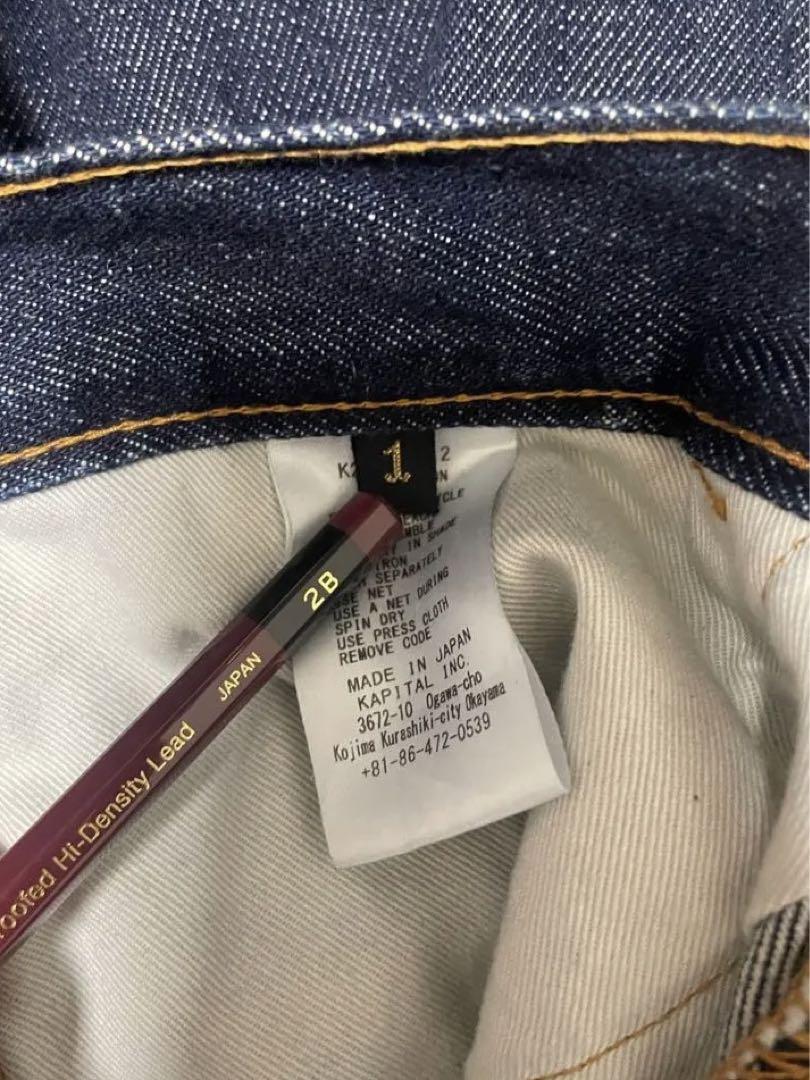 1
K2
2
ON
CYCLE
IN SHADE
IRON
SEPARATELY
USE NET
USE A NET DURING
SPIN DRY
USE PRESS CLOTH
REMOVE CODE
MADE IN JAPAN
KAPITAL INC.
3672-10 Ogawa-cho
Kojima Kurashiki-city Okayama
+81-86-472-0539
2B
JAPAN
Hi-Density Lead